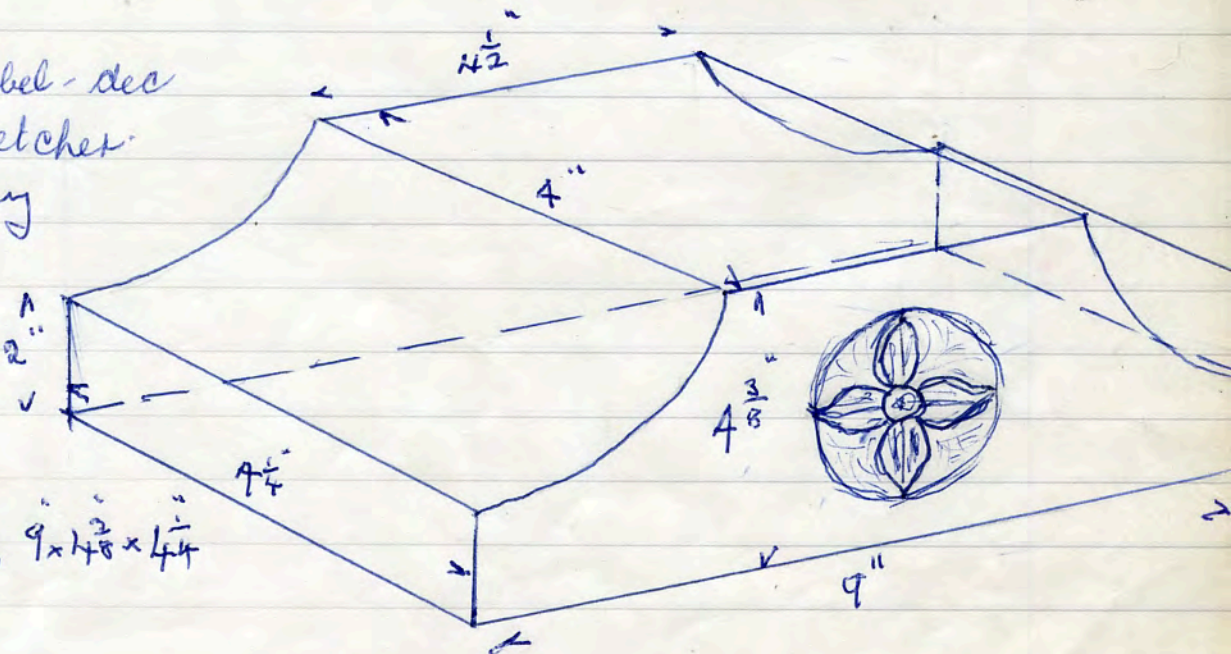 bel-dec
etcher.
ny
4 1/2"
4"
2"
4 3/8"
4 1/4"
9" x 4 3/8" x 4 1/4"
9"